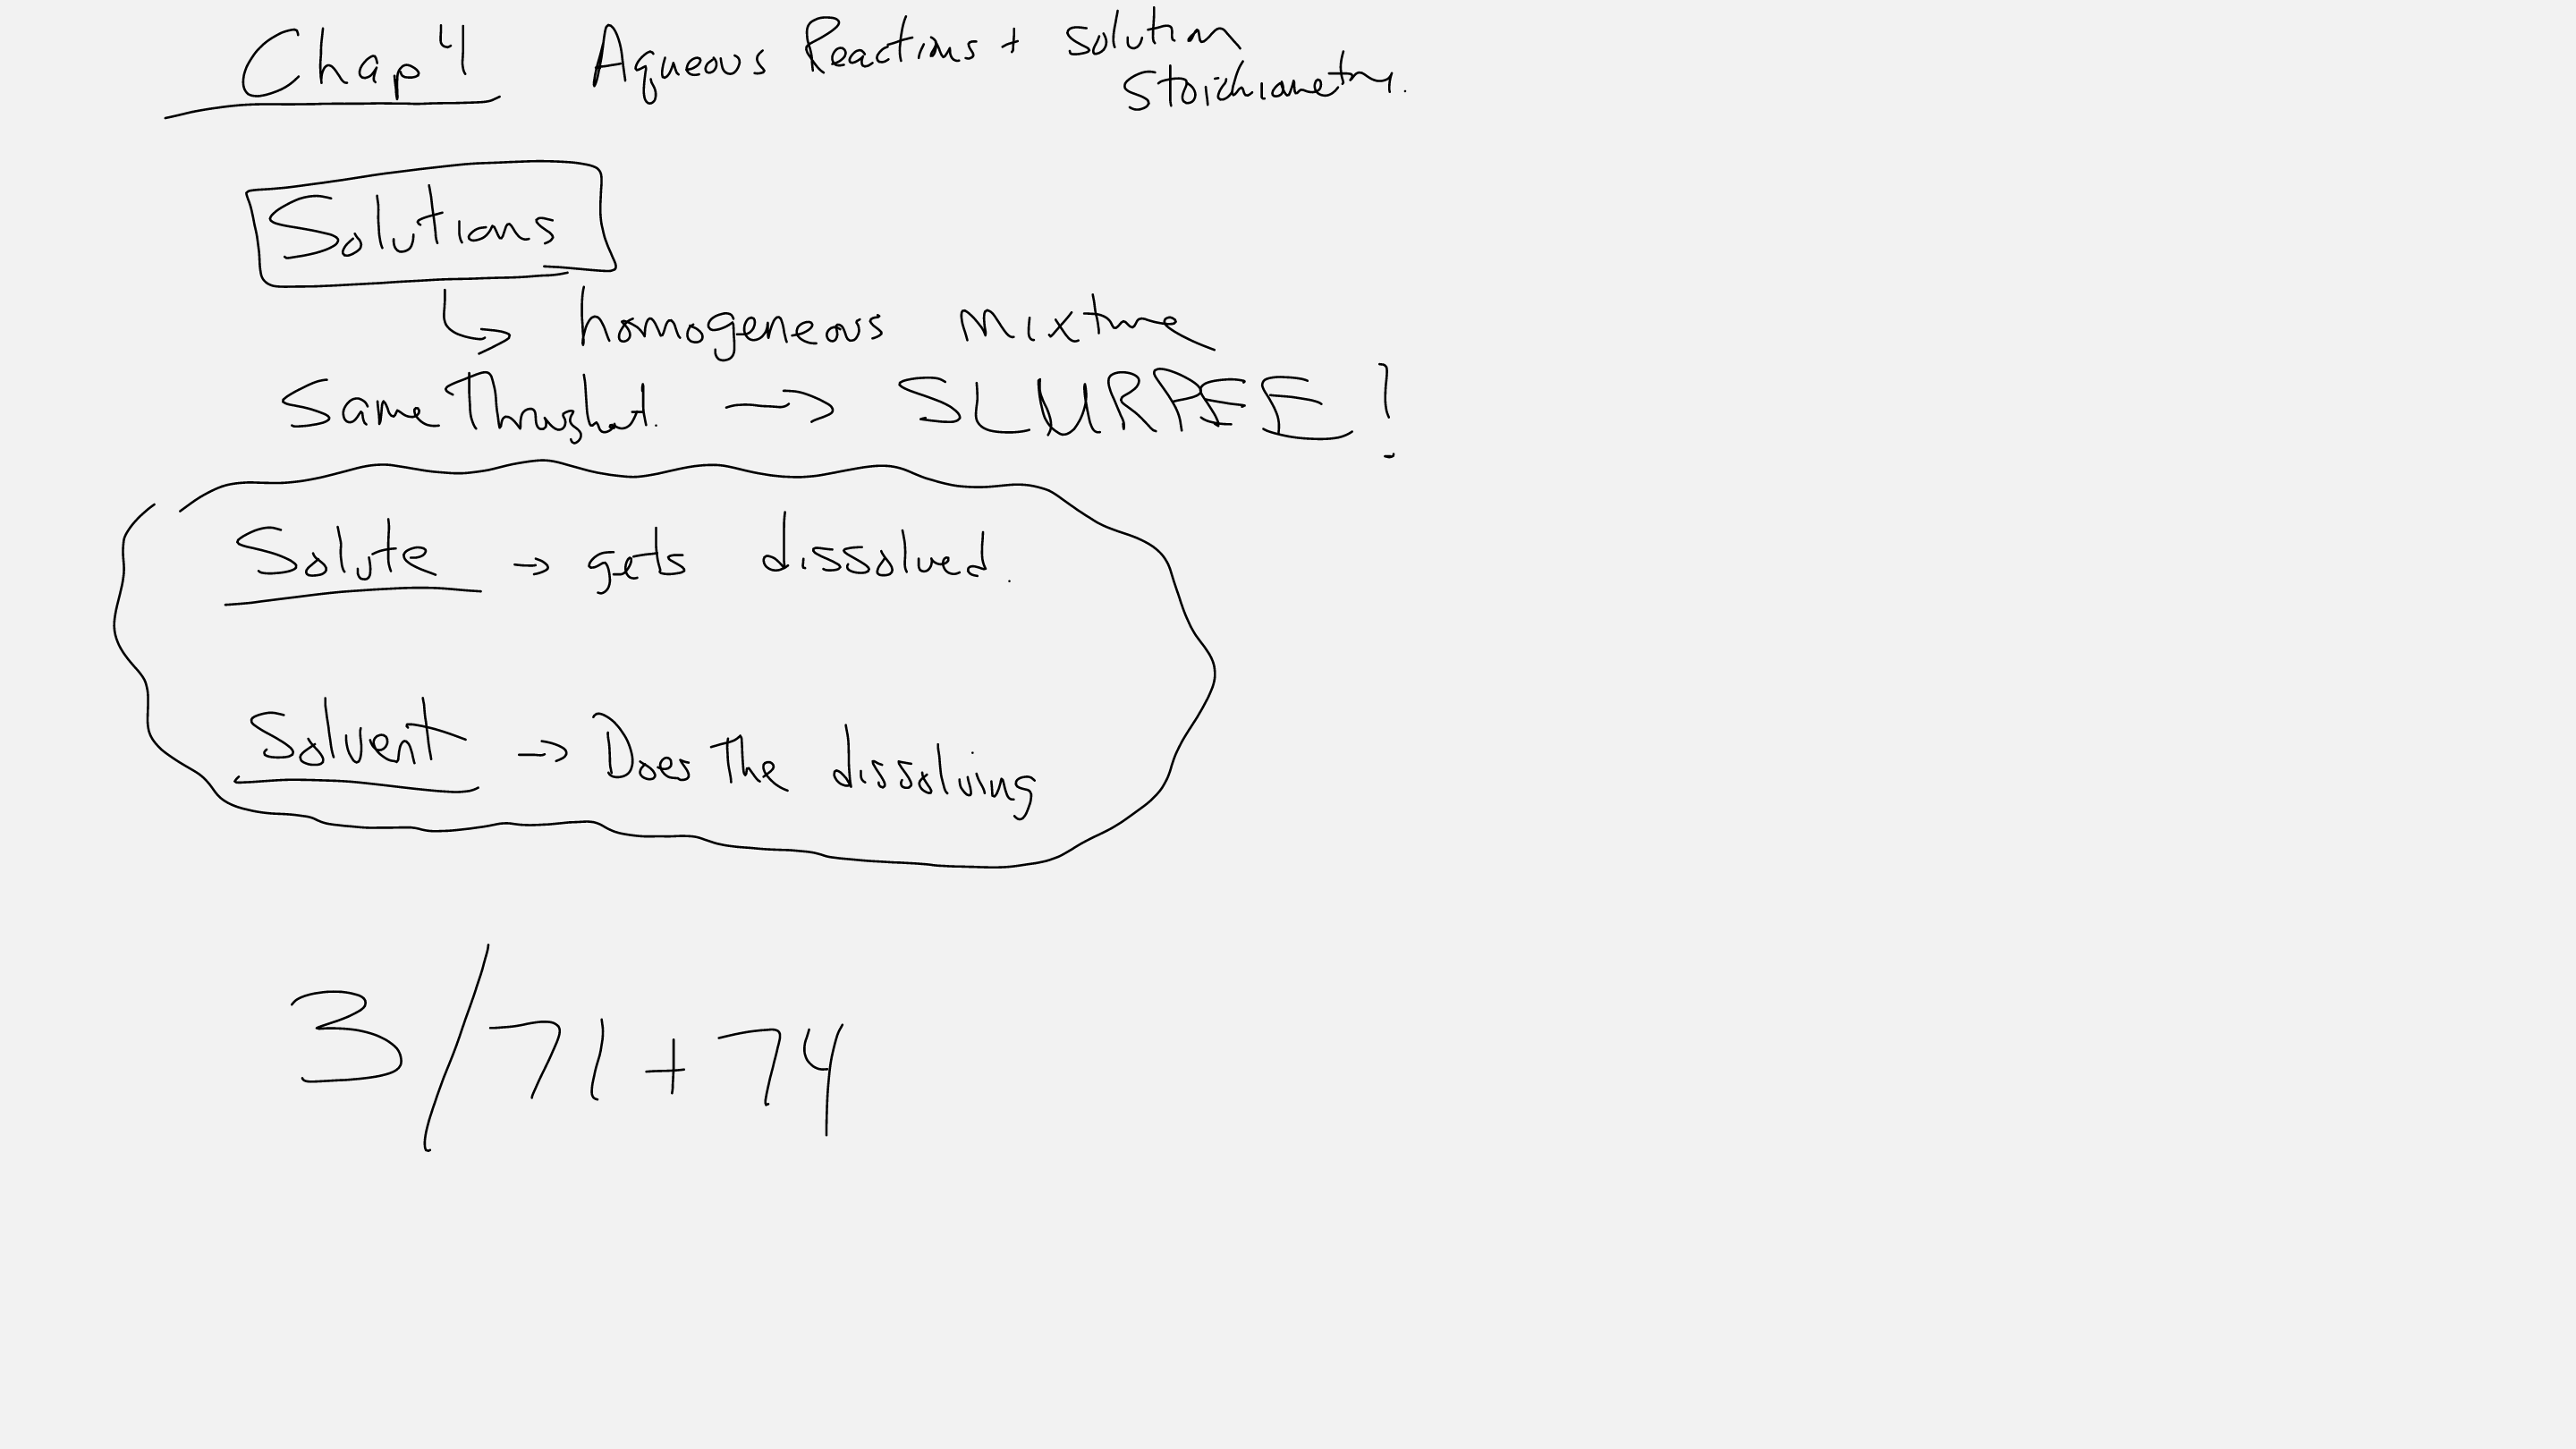 Chap 4 Aqueous Reactions + Solution
Stoichiometry.
Solutions
↳ homogeneous mixture
Same Throughout. → SLURPEE!
Solute → gets dissolved.
Solvent → Does The dissolving
3/71+74